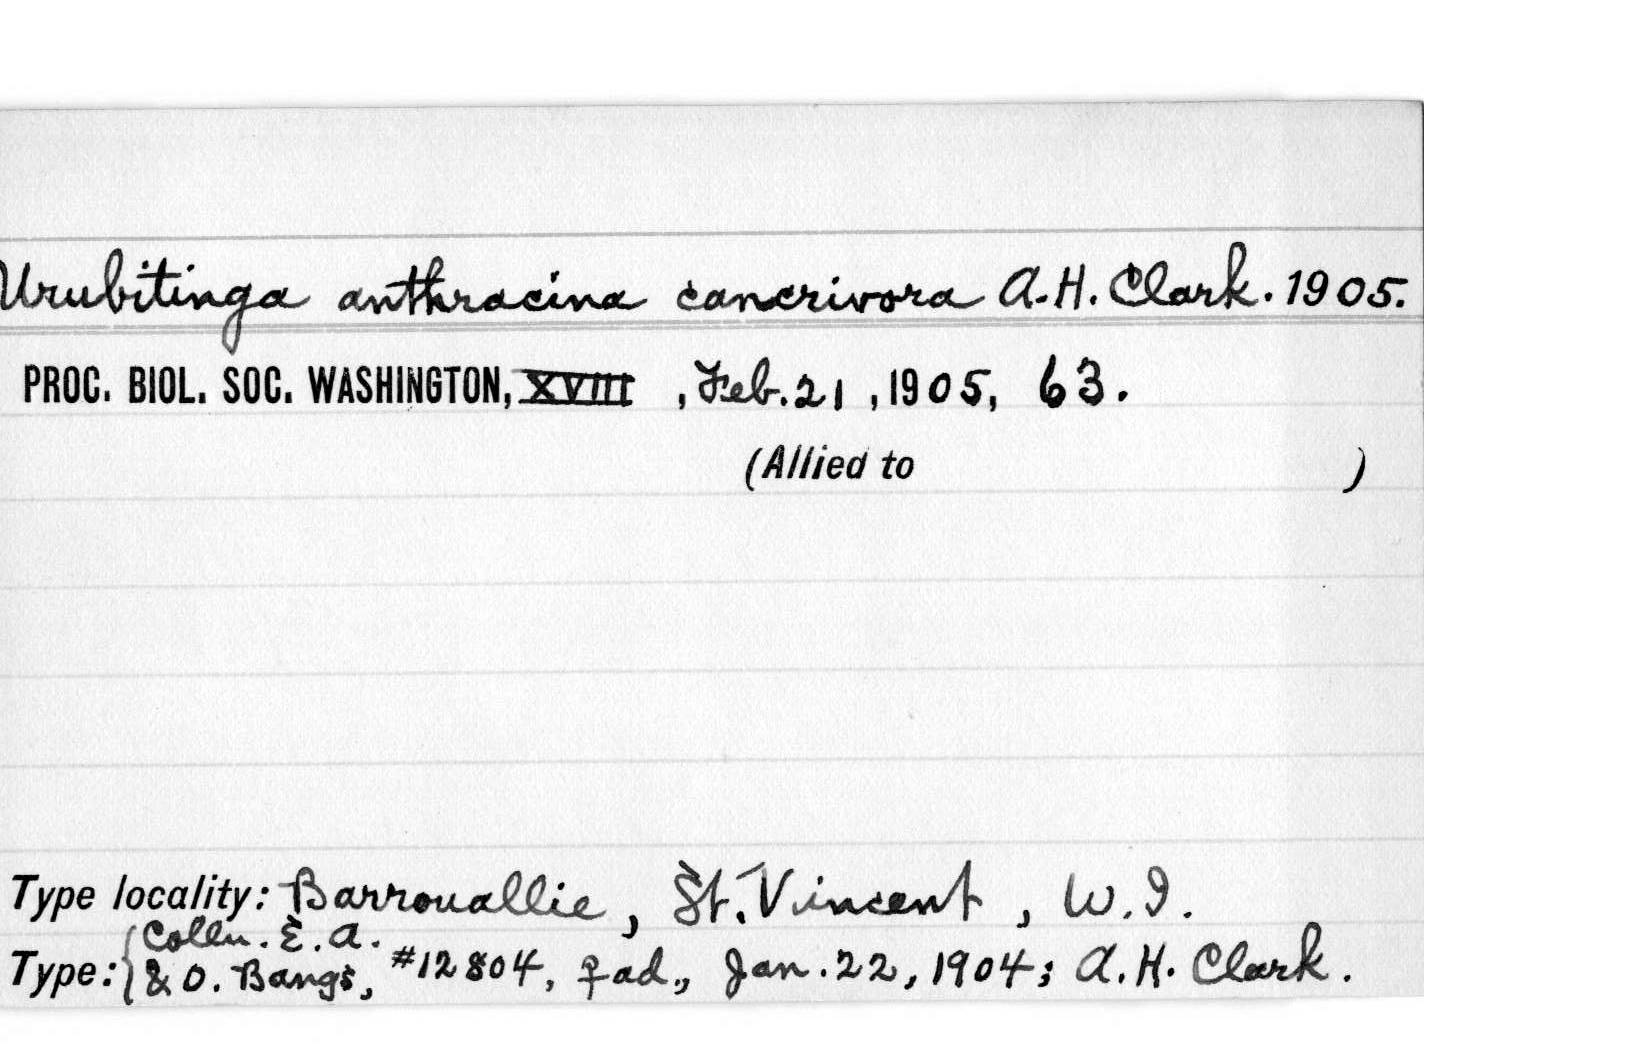 Urubitinga anthracina cancrivora A.H. Clark. 1905.
PROC. BIOL. SOC. WASHINGTON, XVIII , Feb. 21 , 1905, 63.
(Allied to )
Type locality: Barrouallie, St. Vincent, W.I.
Type: { Colln. E. A. & O. Bangs, #12804, ♀ ad., Jan. 22, 1904; A.H. Clark.